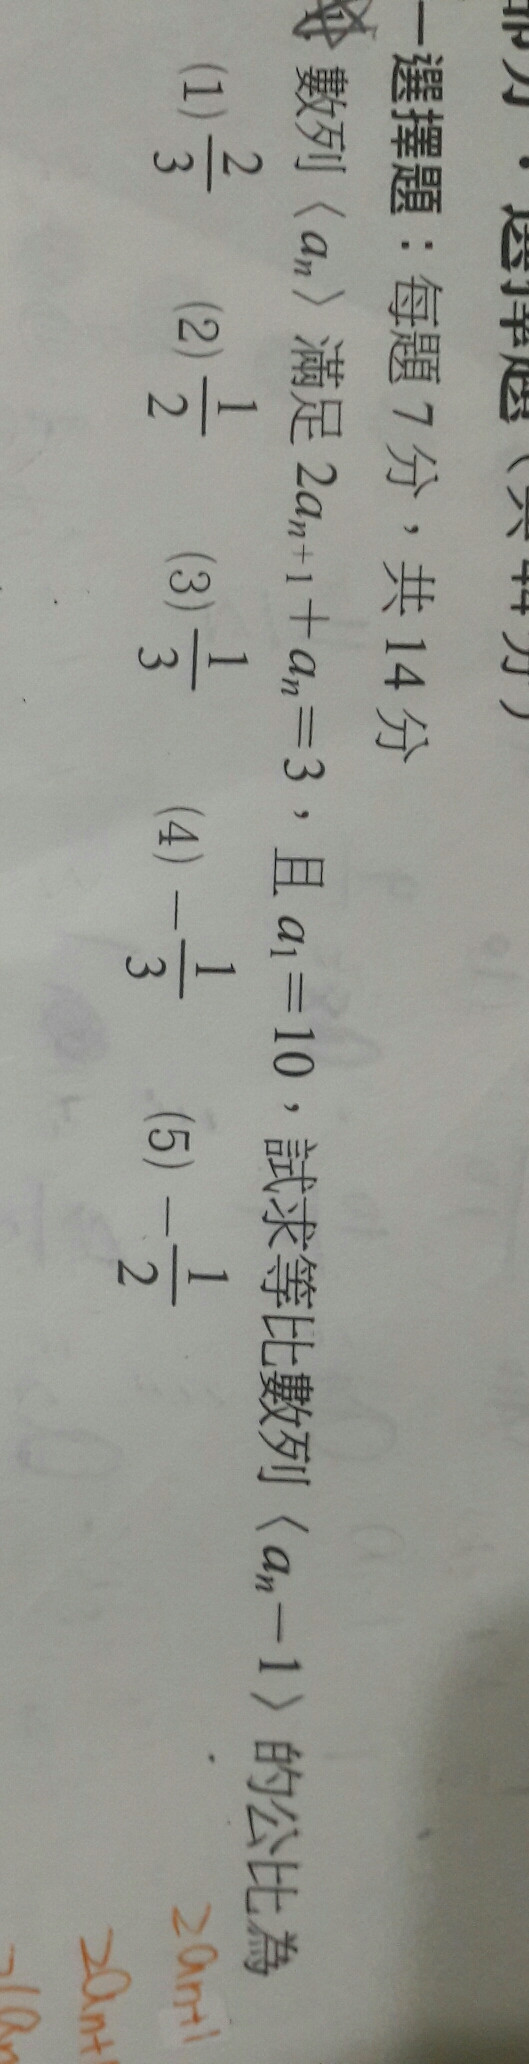 部分：選擇題（共44分）
一選擇題：每題7分，共14分
數列〈aₙ〉滿足2aₙ₊₁+aₙ=3，且a₁=10，試求等比數列〈aₙ－1〉的公比為
(1) 2/3 (2) 1/2 (3) 1/3 (4) －1/3 (5) －1/2
2aₙ₊₁
2aₙ₊